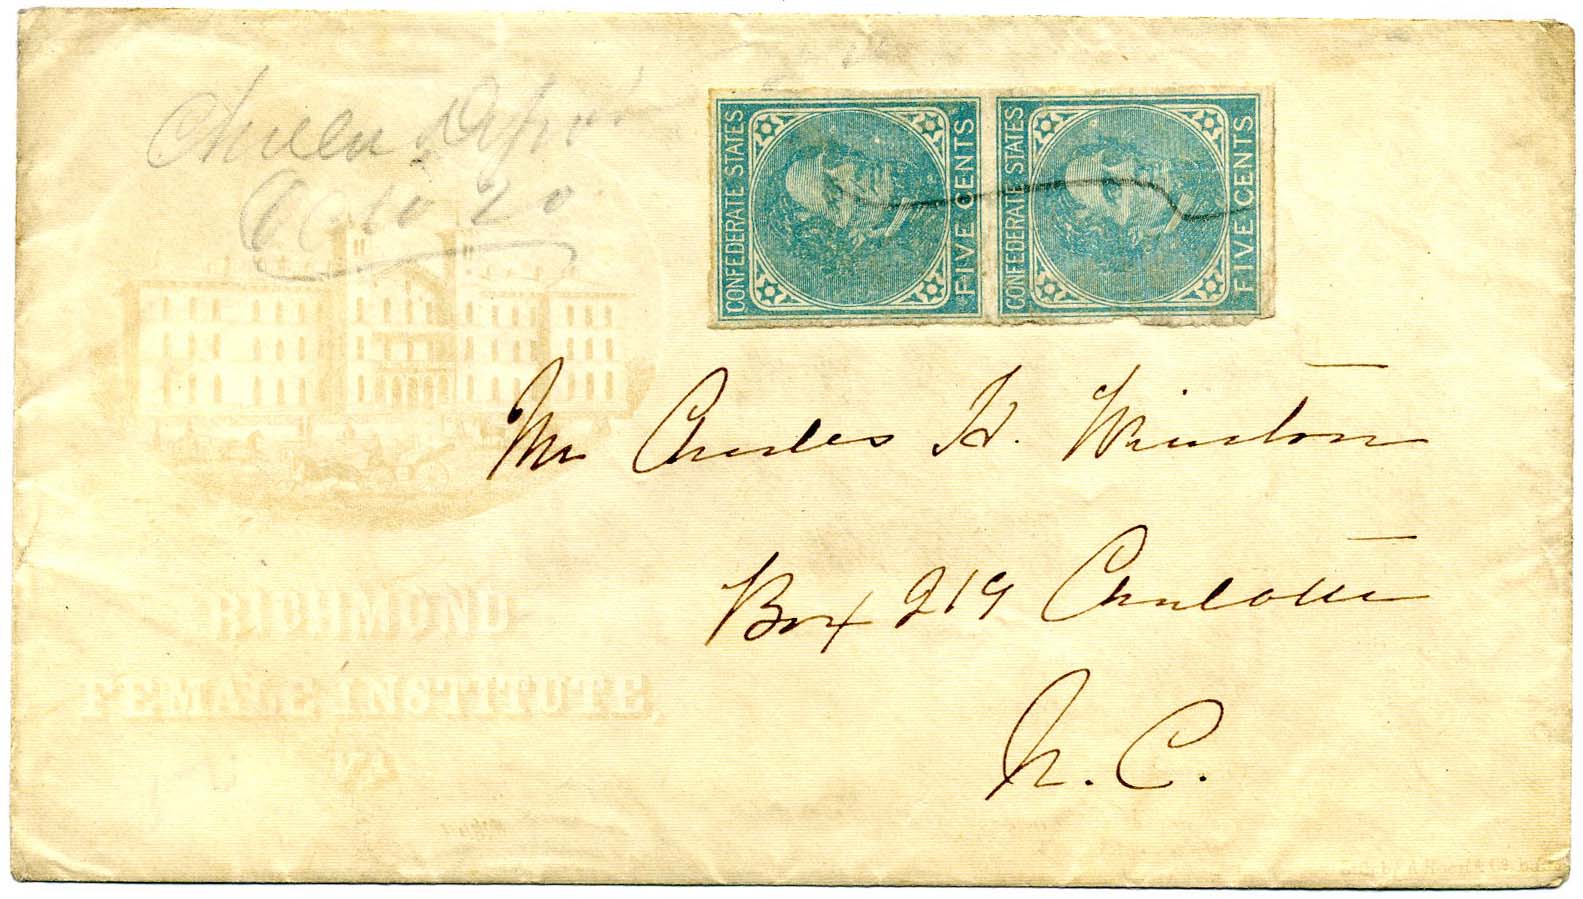 Chula Depot
Octo 20
CONFEDERATE STATES
FIVE CENTS
CONFEDERATE STATES
FIVE CENTS
Mr Charles H. Winston
Box 219 Charlotte
N. C.
RICHMOND
FEMALE INSTITUTE,
VA